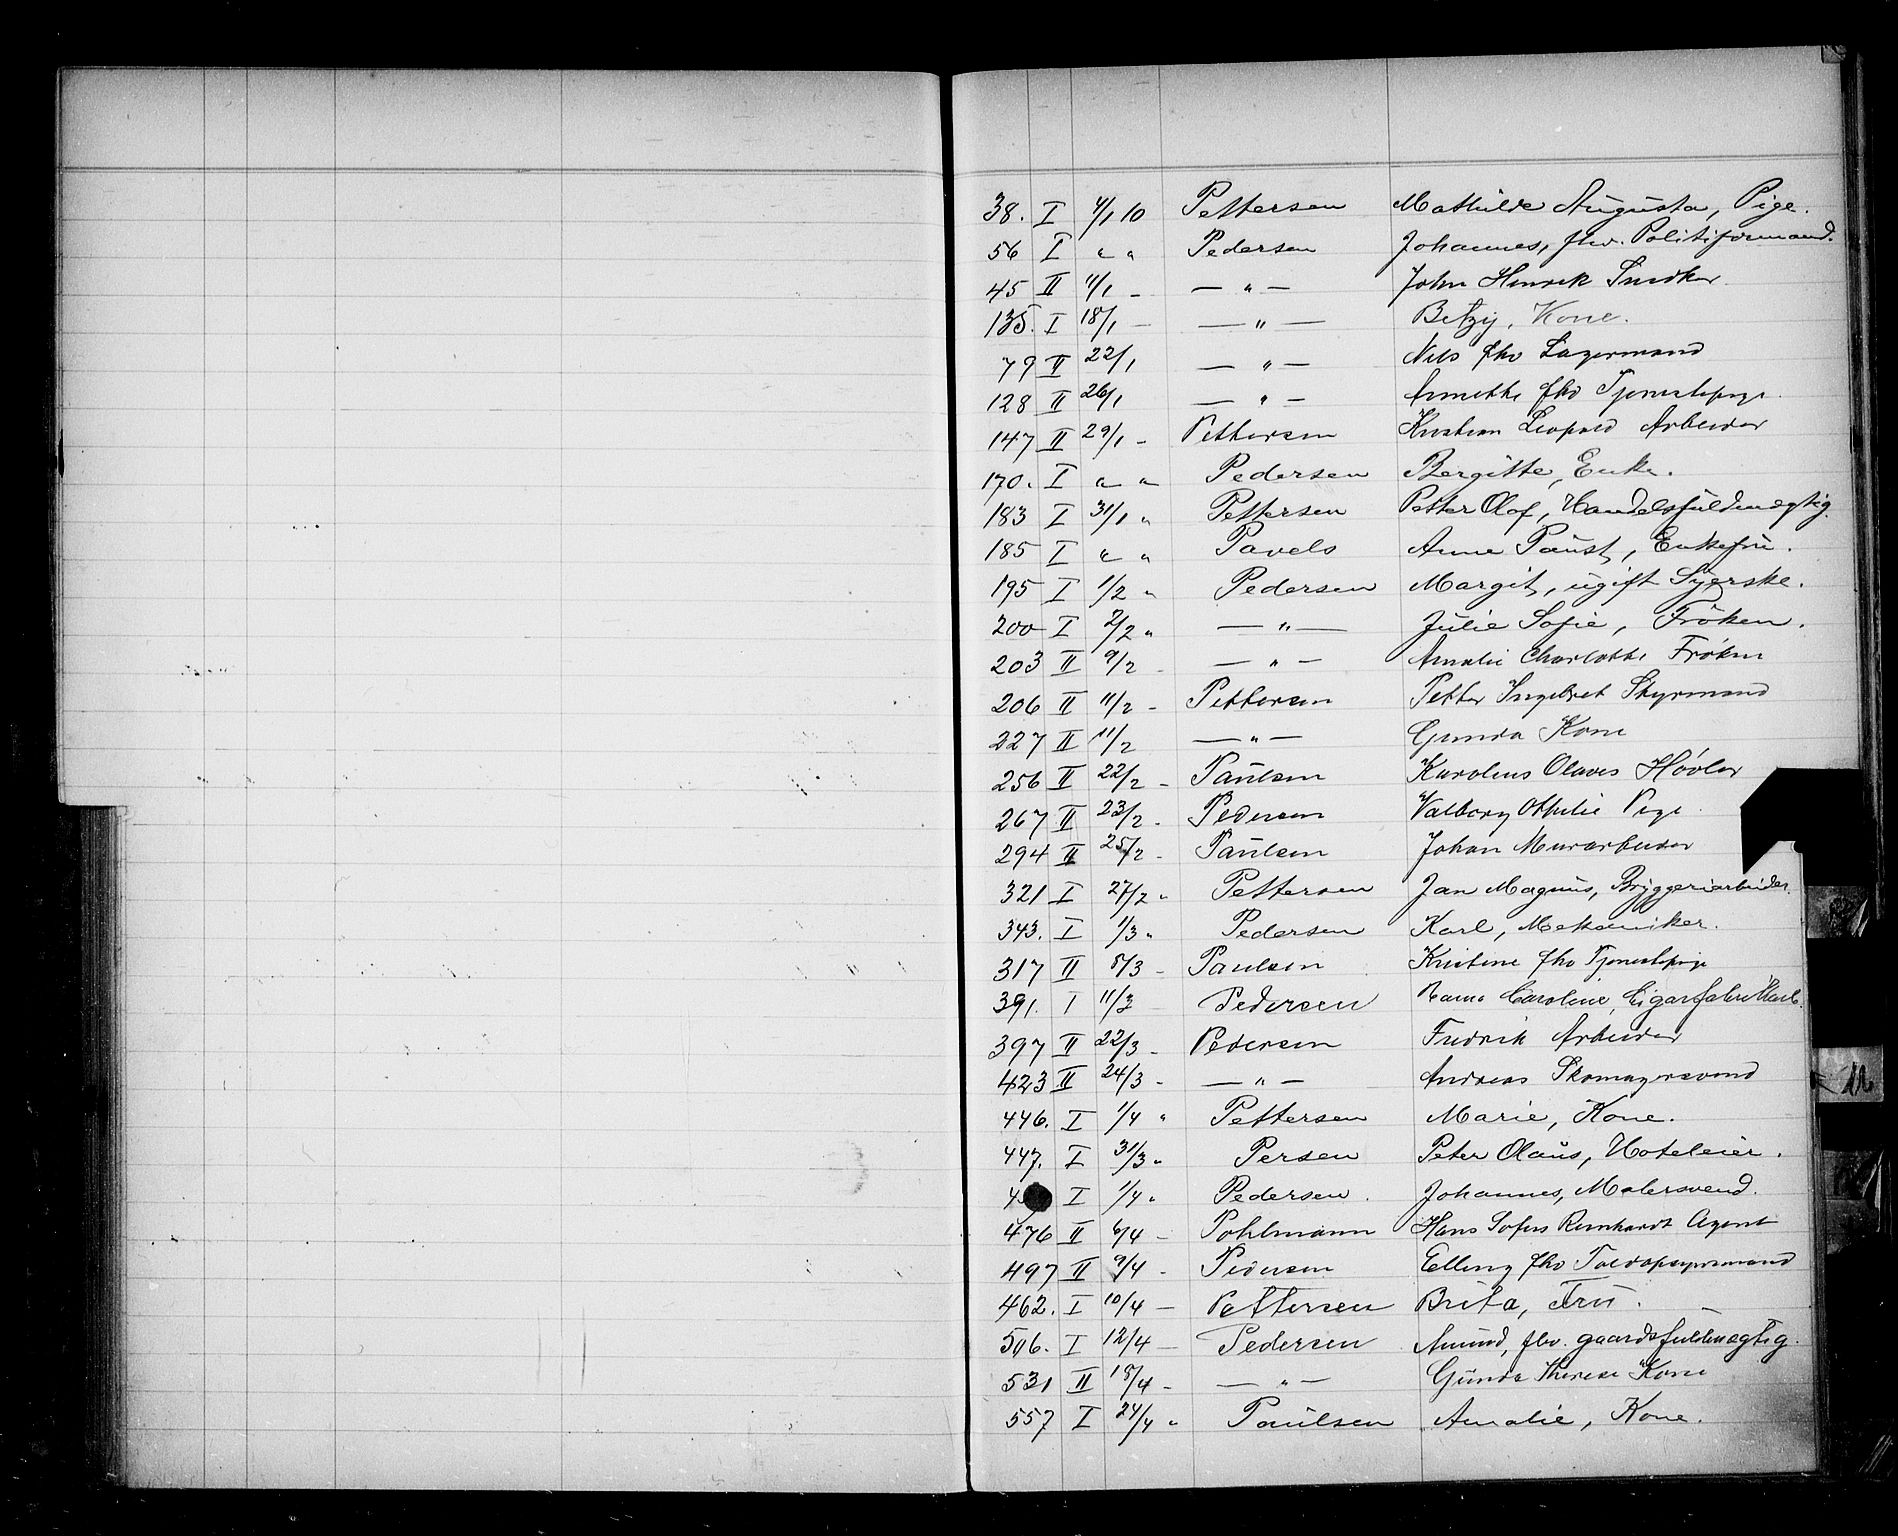 38. I 4/1 10 Pettersen Mathilde Augusta, Pige.
56 I " " Pedersen Johannes, fhv. Politiformand.
45 II 11/1 - — " — John Henrik Snedker
135. I 18/1 — — " — Betzy, Kone.
79 II 22/1 — " — Nils fhv Lagermand
128 II 26/1 — " — Annette fhv Tjenestepige.
147 II 29/1 - Pettersen Kristian Leopold Arbeider
170. I " " Pedersen Bergitte, Enke.
183 I 31/1 " Pettersen Petter Olof, Handelsfuldmægtig.
185 I " " Pavels Anne Paust, Enkefru.
195 I 1/2 " Pedersen Margit, ugift Syerske.
200 I 2/2 " — " — Julie Sofie, Frøken.
203 II 9/2 - — " — Amalie Charlotte Frøken
206 II 11/2 - Pettersen Petter Ingebret Styrmand
227 II 11/2 — " — Gunda Kone
256 II 22/2 - Paulsen Karolius Olaves Høvler
267 II 23/2 - Pedersen Valborg Othilie Pige
294 II 25/2 - Paulsen Johan Murarbeider
321 I 27/2 " Pettersen Jan Magnus, Bryggeriarbeider.
343. I 1/3 " Pedersen Karl, Mekaniker.
317 II 5/3 - Paulsen Kristine fhv Tjenestepige
391. I 11/3 — Pedersen Caroline, Cigarfabrik
397 II 22/3 - Pedersen Fredrik Arbeider
423 II 24/3 - — " — Andreas Skomagersvend
446. I 1/4 " Pettersen Marie, Kone.
447. I 31/3 " Persen Peter Olaus, Hoteleier.
4 I 1/4 " Pedersen. Johannes, Malersvend.
476 II 6/4 - Pohlmann Hans Sofus Reinhardt Agent
497 II 9/4 - Pedersen Elling fhv Toldopsynsmand
462. I 10/4 — Pettersen Brita, Fru.
506. I 12/4 — Pedersen Amund, fhv. gaardsfuldmægtig.
531 II 15/4 - — " — Gunda Therese Kone
557 I 24/4 " Paulsen Amalie, Kone.